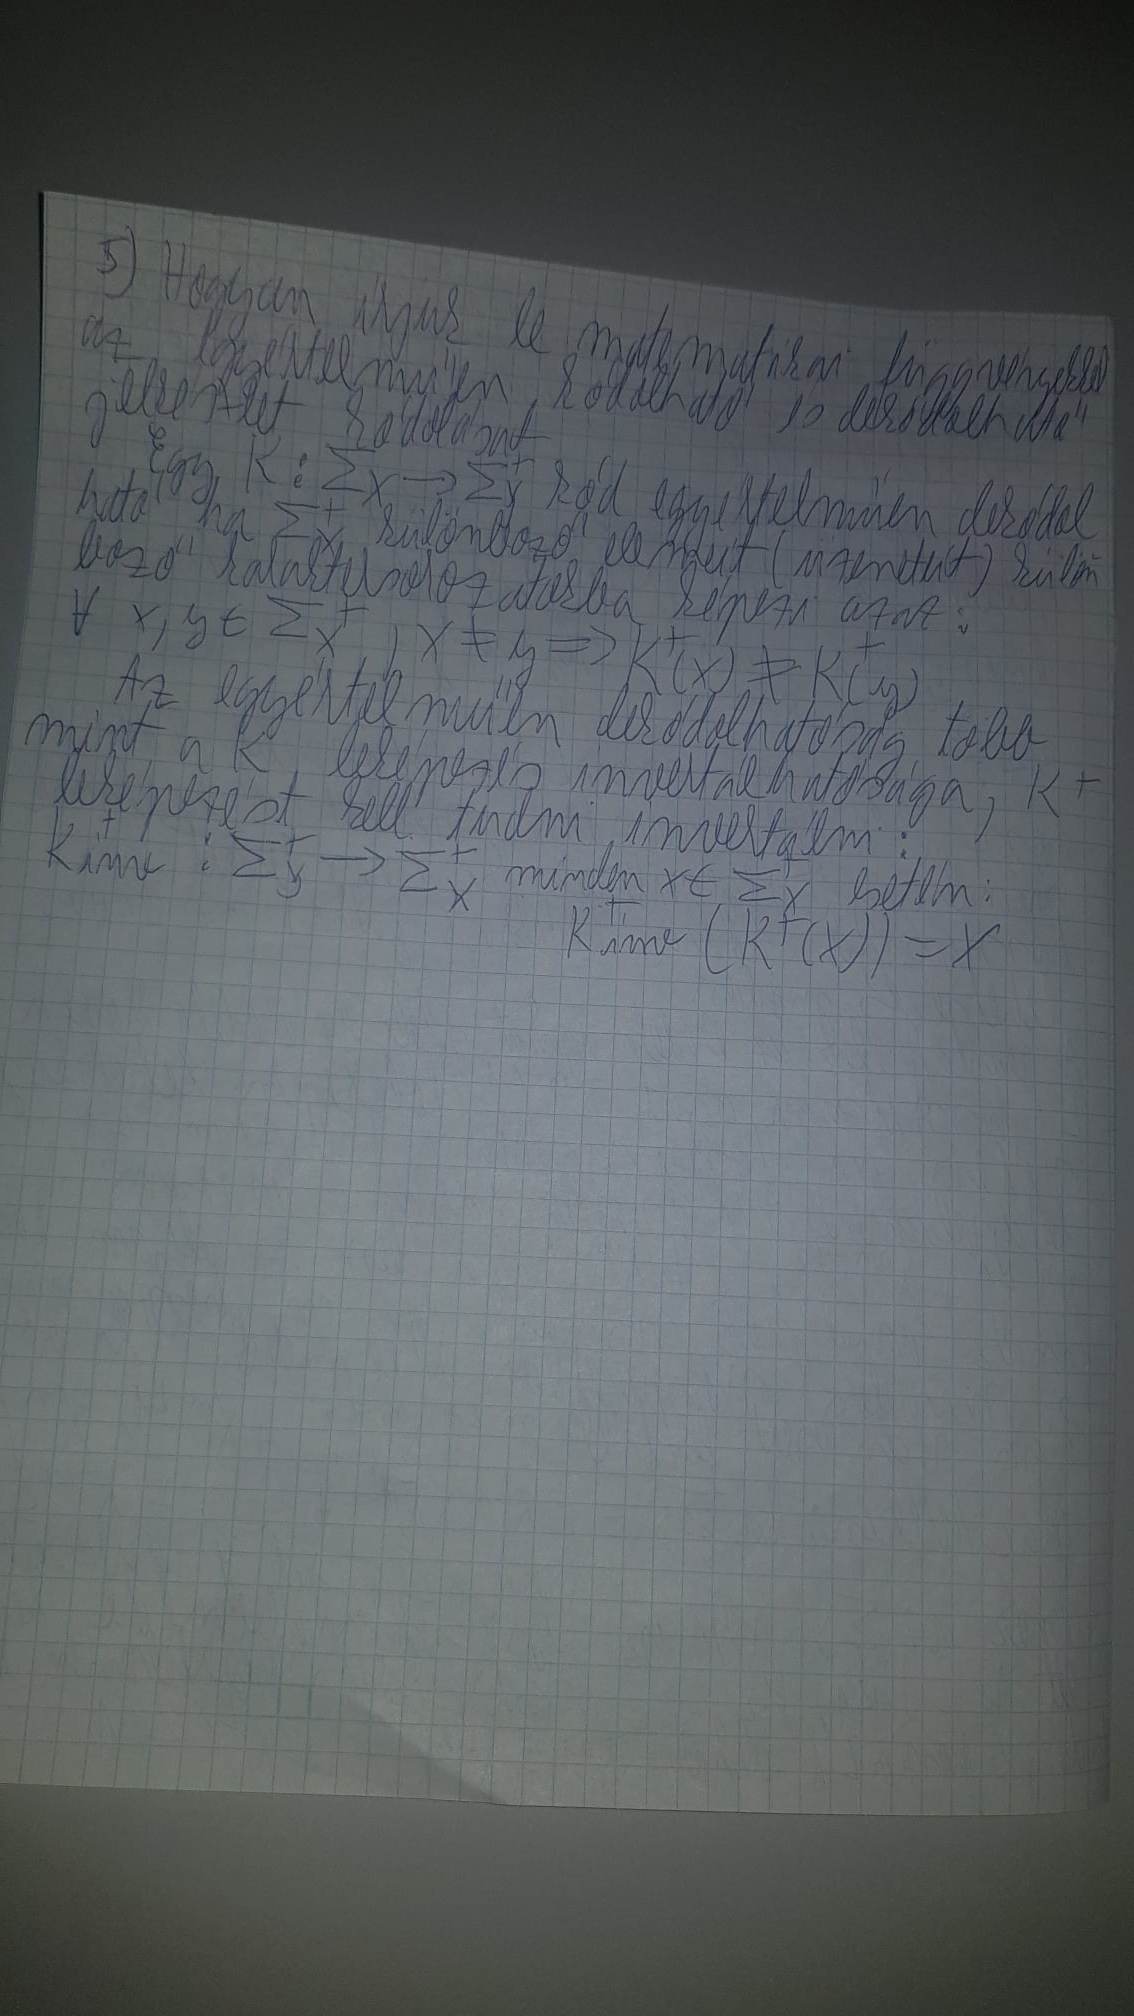 5) Hogyan írjuk le matematikai függvényekkel
az egyértelműen kódolható és dekódolható
jelkészlet kódolását
Egy K: Σx → Σy⁺ kód egyértelműen dekódol
ható ha Σx⁺ különböző elemeit (üzeneteit) külön
böző kódsorozatokba képezi azaz:
∀ x, y ∈ Σx⁺, x ≠ y => K⁺(x) ≠ K⁺(y)
Az egyértelműen dekódolhatóság több
mint a K leképezés invertálhatósága, K⁺
leképezést kell tudni invertálni:
K⁺inv : Σy⁺ → Σx⁺ minden x ∈ Σx⁺ esetén:
K⁺inv (K⁺(x)) = x